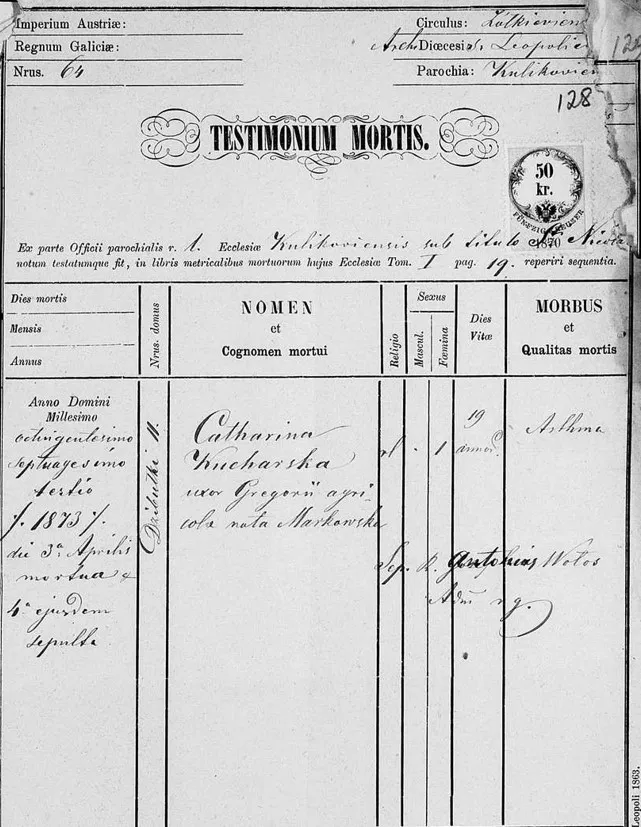 Imperium Austriæ:
Circulus: Zólkiewien
Regnum Galiciæ:
Archi Diœcesis Leopolien
Nrus. 64
Parochia: Kulikovien
128
TESTIMONIUM MORTIS.
50
kr.
1870
Ex parte Officii parochialis r. l. Ecclesiæ Kulikoviensis sub titulo St. Nicola
notum testatumque fit, in libris metricalibus mortuorum hujus Ecclesiæ Tom. I pag. 19. reperiri sequentia.
Dies mortis
Mensis
Annus
Nrus. domus
NOMEN
et
Cognomen mortui
Religio
Sexus
Mascul.
Fœmina
Dies
Vitæ
MORBUS
et
Qualitas mortis
Anno Domini
Millesimo
octingentesimo
septuagesimo
tertio
/. 1873 /.
die 3a Aprilis
mortua &
4a ejusdem
sepulta
Dzibulki 11.
Catharina
Kucharska
uxor Gregorii agri-
colæ nata Markowska
rl
1
19
annor.
Asthma
Sep. R. Antonius Wolos
Adm rg.
Leopoli 1863.